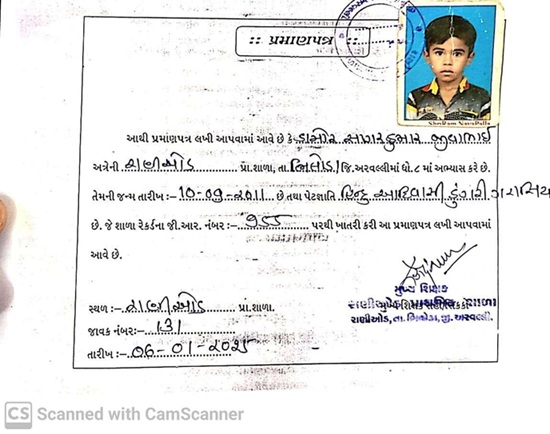 :: પ્રમાણપત્ર ::
Shriram NavaPalla
આથી પ્રમાણપત્ર લખી આપવામાં આવે છે કે ડામોર સાગરકુમાર જીવાભાઈ
અત્રેની રાણીઓડ પ્રા.શાળા, તા. ભિલોડા/જિ.અરવલ્લીમાં ધો. ૮ માં અભ્યાસ કરે છે.
તેમની જન્મ તારીખ :- 10-09-2011 છે તથા પેટાજ્ઞાતિ હિન્દુ આદિવાસી ડુંગરી ગરાસિયા
છે. જે શાળા રેકર્ડના જી.આર. નંબર :- ૧૬૦૦ પરથી ખાતરી કરી આ પ્રમાણપત્ર લખી આપવામાં
આવે છે.
મુખ્ય શિક્ષક
સ્થળ :- રાણીઓડ પ્રા.શાળા.
રાણીઓડ, તા. ભિલોડા, જી. અરવલ્લી.
જાવક નંબર:- 131
તારીખ :- 06-01-2025
CS Scanned with CamScanner